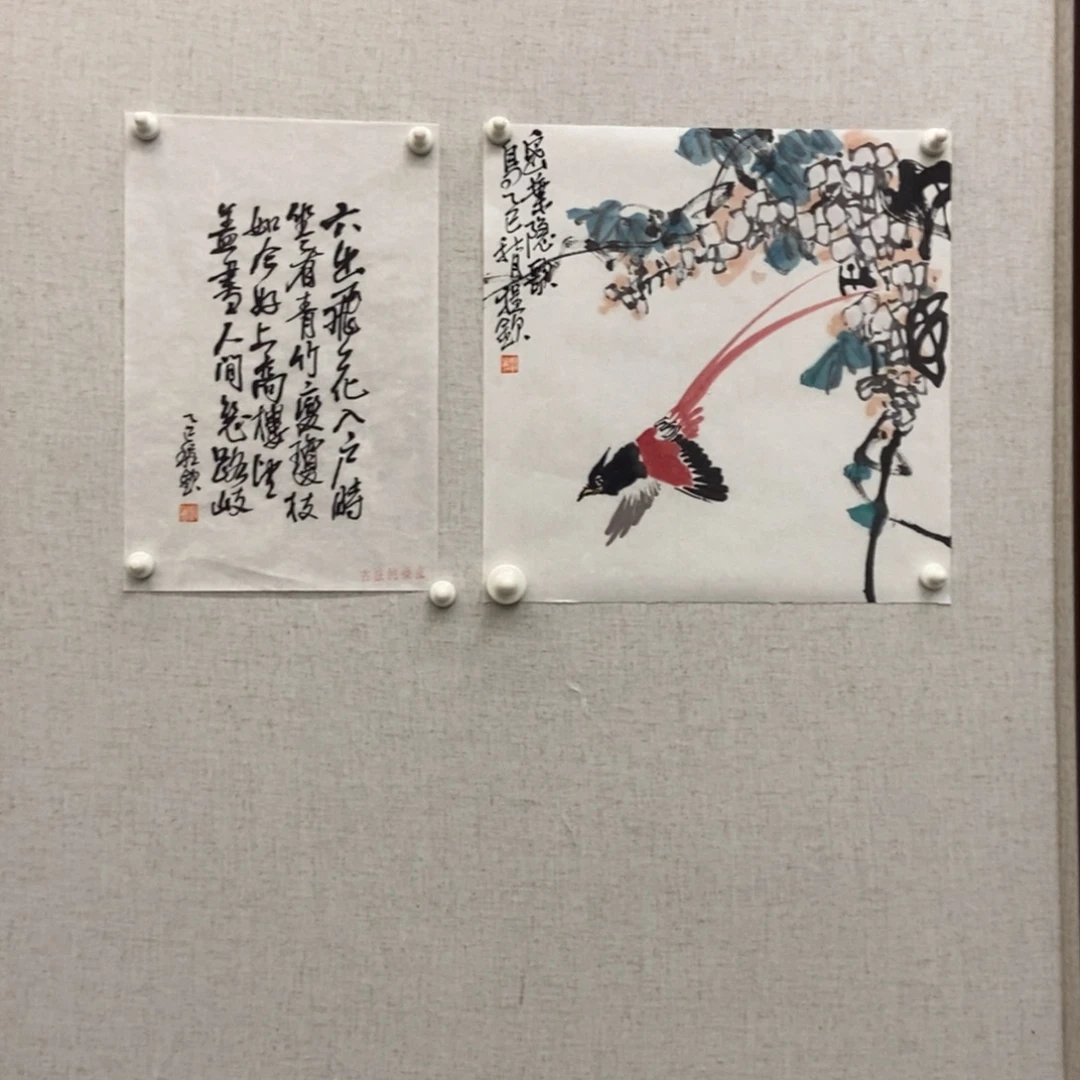 六出飛花入户時
坐看青竹變瓊枝
如今好上高樓望
盖盡人間惡路岐
乙巳程欽
密葉隱歌
鳥乙巳秋月程欽